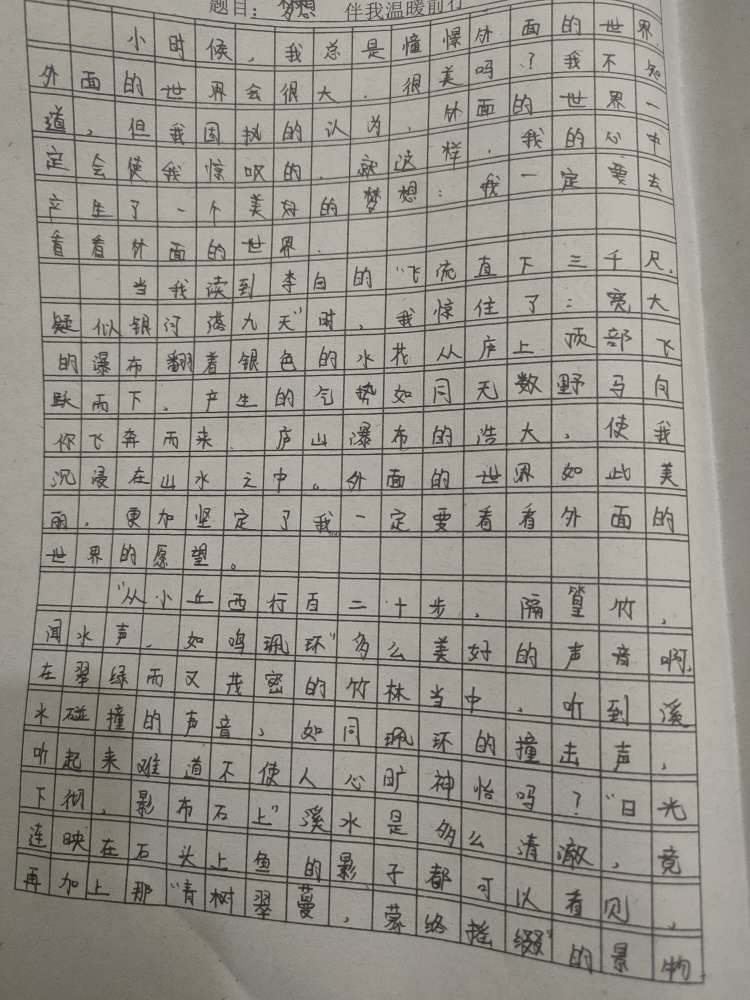 题目：梦想 伴我温暖前行
小时候，我总是憧憬外面的世界.
外面的世界会很大.很美吗？我不知
道，但我固执的认为，外面的世界一
定会使我惊叹的.就这样，我的心中
产生了一个美好的梦想：我一定要去
看看外面的世界.
当我读到李白的“飞流直下三千尺,
疑似银河落九天”时，我惊住了：宽大
的瀑布翻着银色的水花从庐上顶部飞
跃而下.产生的气势如同无数野马向
你飞奔而来.庐山瀑布的浩大，使我
沉浸在山水之中。外面的世界如此美
丽.更加坚定了我一定要看看外面的
世界的愿望。
“从小丘西行百二十步，隔篁竹，
闻水声，如鸣珮环”多么美好的声音啊,
在翠绿而又茂密的竹林当中，听到溪
水碰撞的声音，如同珮环的撞击声，
听起来难道不使人心旷神怡吗？“日光
下彻，影布石上”溪水是多么清澈，竟
连映在石头上鱼的影子都可以看见，
再加上那“青树翠蔓，蒙络摇缀”的景物